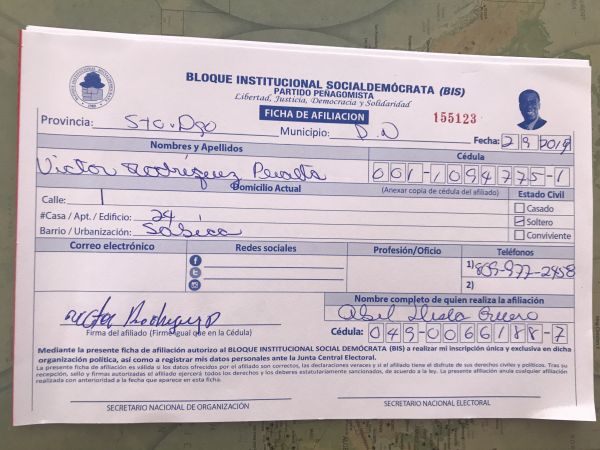 BLOQUE INSTITUCIONAL SOCIALDEMÓCRATA (BIS)
PARTIDO PEÑAGOMISTA
Libertad, Justicia, Democracia y Solidaridad
FICHA DE AFILIACION
155123
Provincia: Sto. Dgo Municipio: D.N Fecha: 2 9 2019
Nombres y Apellidos Cédula
Victor Rodríguez 001-1094775-1
Domicilio Actual (Anexar copia de cédula del afiliado) Estado Civil
Calle: 1 Casado
#Casa / Apt. / Edificio: 24 Soltero
Barrio / Urbanización: Sabica Conviviente
Correo electrónico Redes sociales Profesión/Oficio Teléfonos
1) 809-977-2458
2)
Nombre completo de quien realiza la afiliación
Victor Rodríguez Abel
Firma del afiliado (Firme igual que en la Cédula) Cédula: 049-0066188-7
Mediante la presente ficha de afiliación autorizo al BLOQUE INSTITUCIONAL SOCIAL DEMÓCRATA (BIS) a realizar mi inscripción única y exclusiva en dicha
organización política, así como a registrar mis datos personales ante la Junta Central Electoral.
La presente ficha de afiliación es válida si los datos ofrecidos por el afiliado son correctos, las declaraciones veraces y si el afiliado tiene el disfrute de sus derechos civiles y políticos. Tras su
recepción, sello y firmas autorizadas el afiliado ejercerá todos los derechos y los deberes estatutariamente sancionados, de acuerdo a la ley. La presente afiliación anula cualquier afiliación
realizada con anterioridad a la fecha que aparece en esta ficha.
SECRETARIO NACIONAL DE ORGANIZACIÓN SECRETARIO NACIONAL ELECTORAL